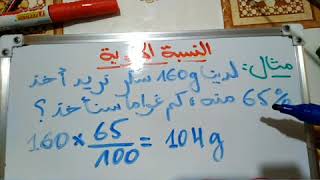 النسبة المئوية
مثال: لدينا 160g سكر نريد أخذ
65% منه، كم غراما سنأخذ؟
160 × 65/100 = 104g